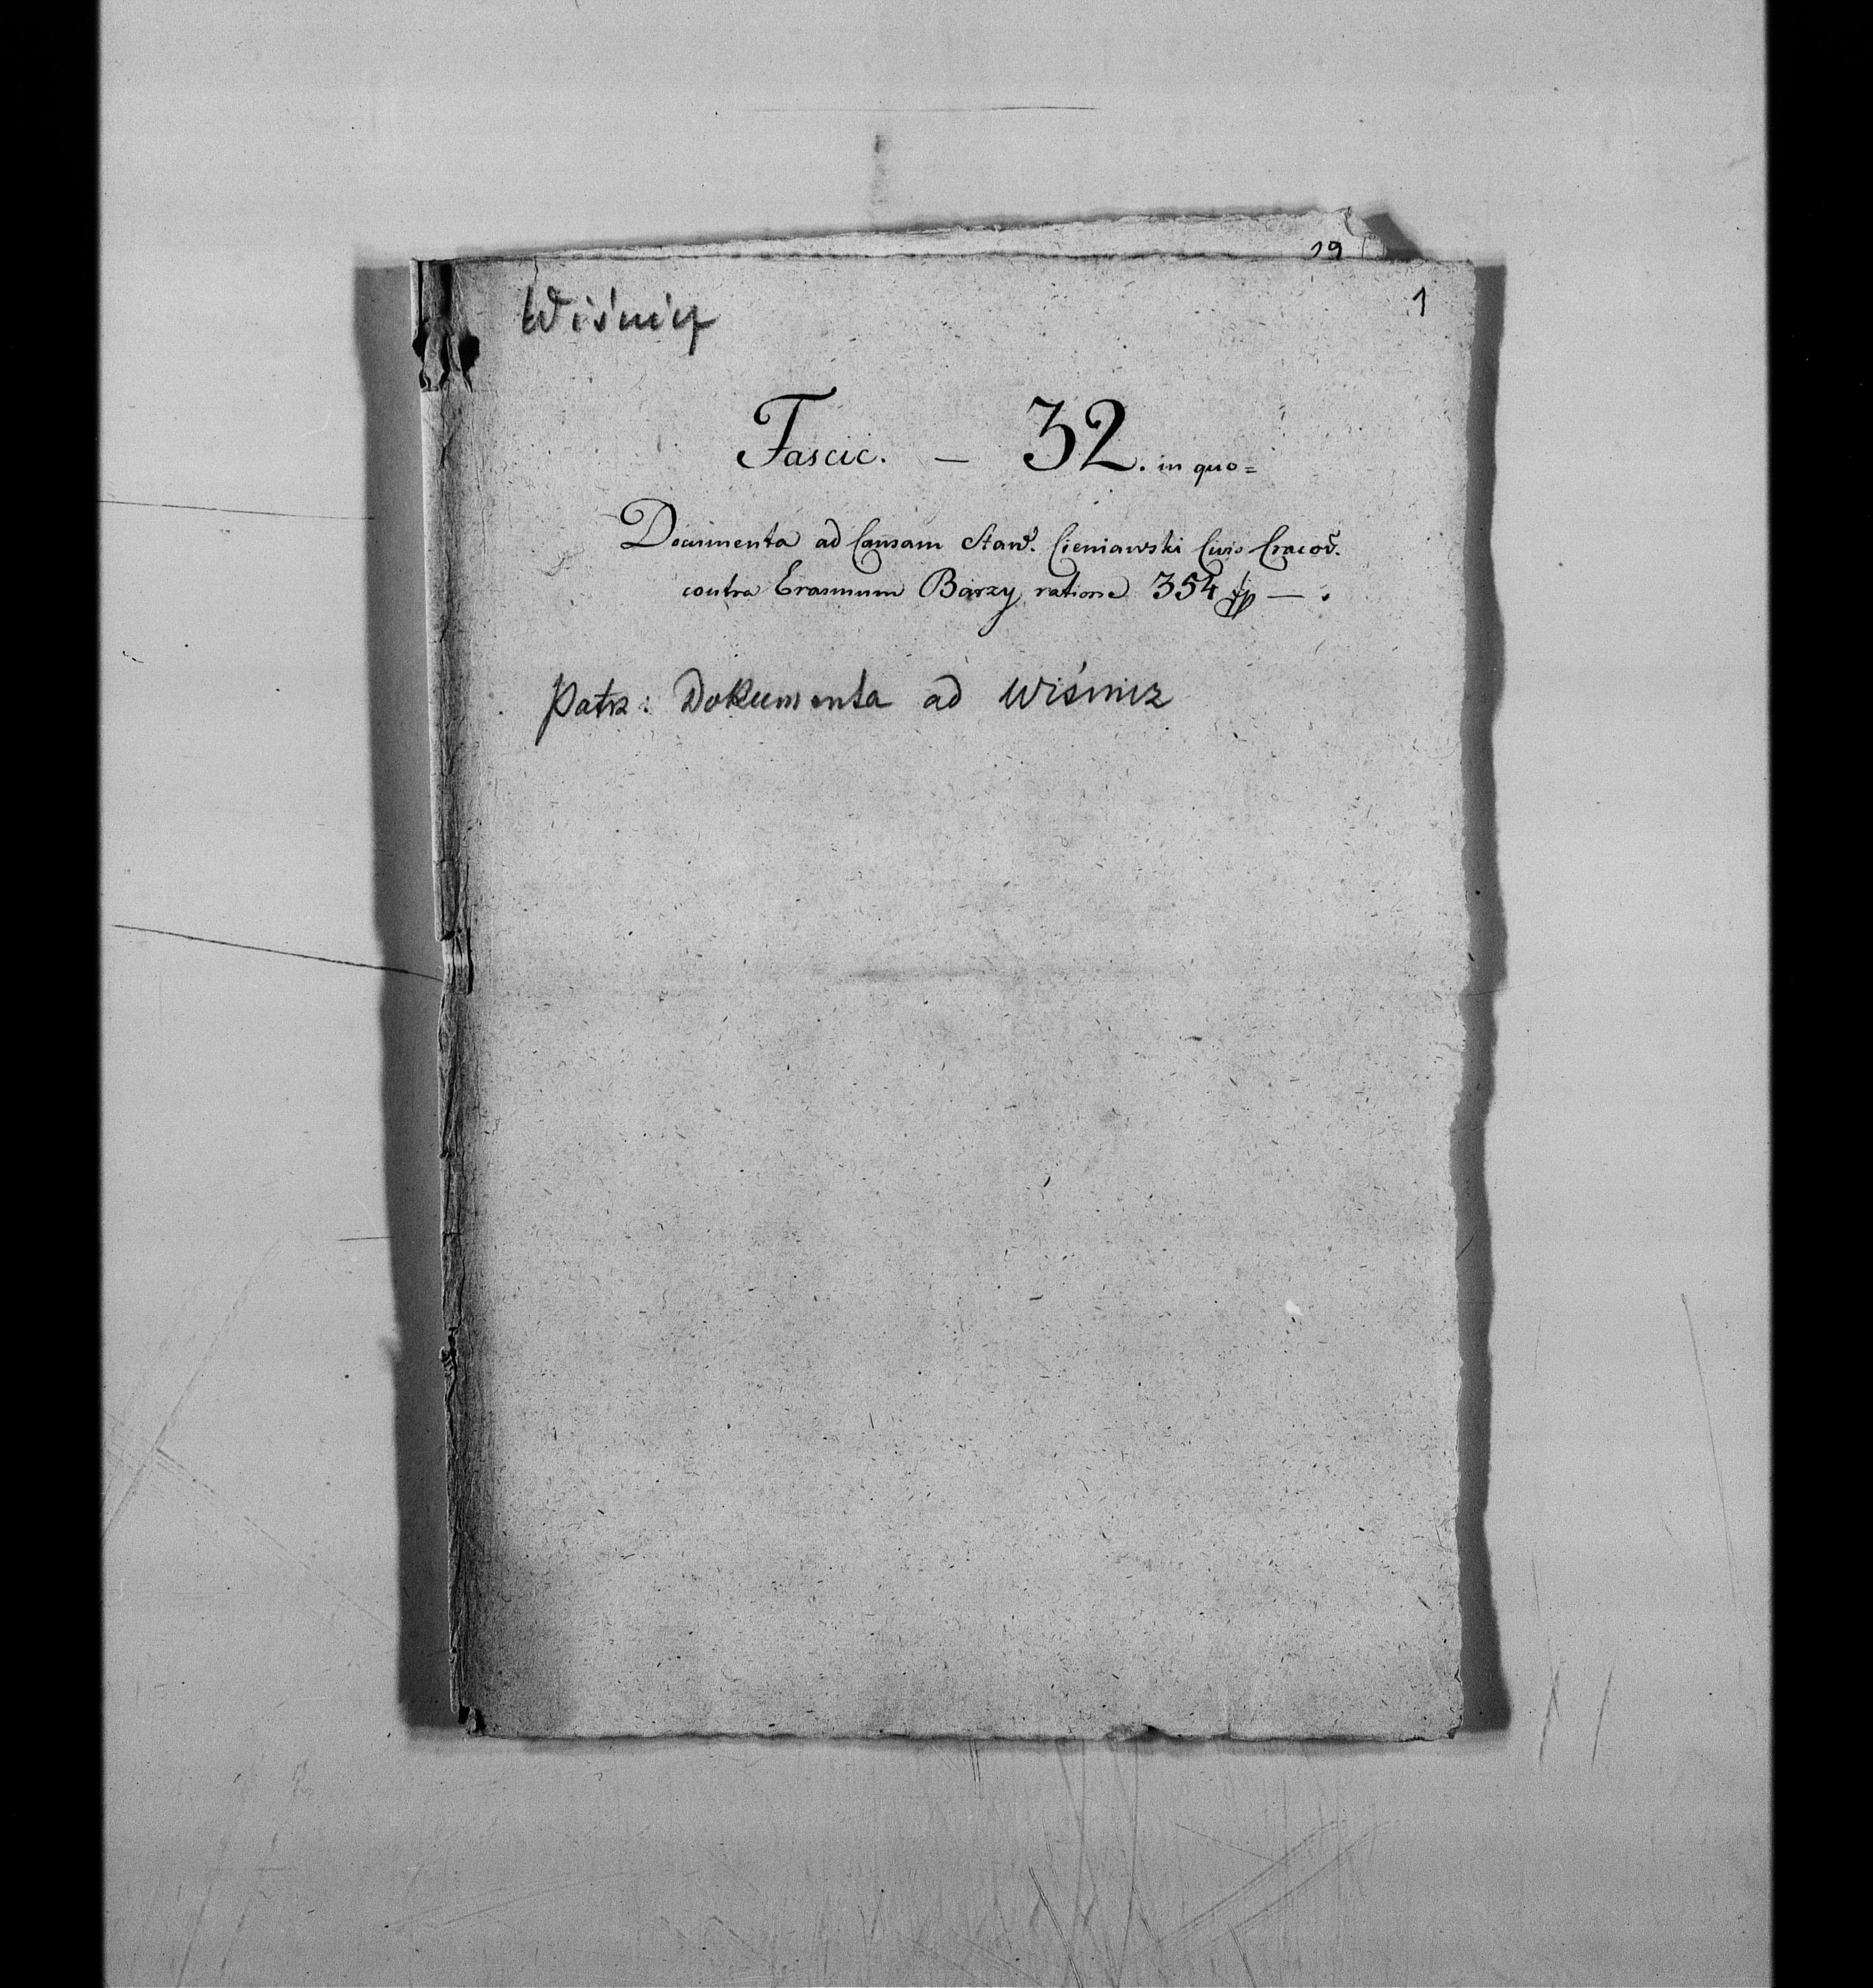 19
1
Wiśnicz
Fascic. — 32. in quo=
Documenta ad Causam Stanĩ. Cieniawski Civis Cracoṽ.
contra Erasmum Barzy ratione 354 fp — .
Patrz: Dokumenta ad Wiśnicz